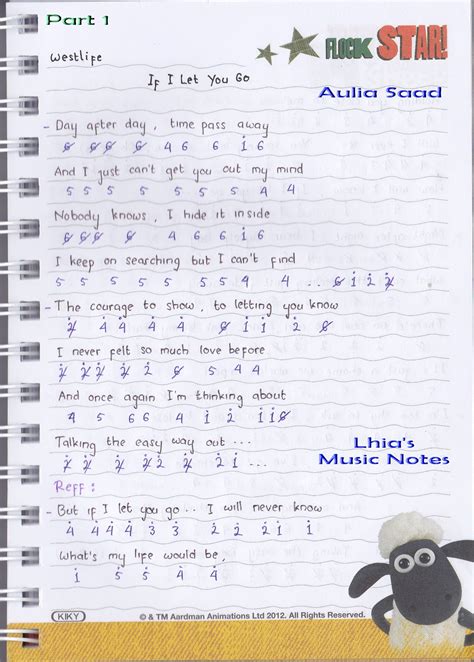 Part 1
Westlife
FLOCK STAR!
If I Let You Go
Aulia Saad
- Day after day, time pass away
6̸ 6̸ 6̸ 4 6 6 1̇ 6
And I just can't get you out my mind
5 5 5 5 5 5 5 4 4
Nobody knows, I hide it inside
6̸6̸6̸ 6̸ 4 6 1̇ 6
I keep on searching but I can't find
5 5 5 5 5 5 5 4 4 .. 6̸ 1̇ 2̇ 2̸̇
- The courage to show, to letting you know
I never felt so much love before
And once again I'm thinking about
4 5 66 4 1̇ 2̇ 1̇1̇6̸
Talking the easy way out ...
Lhia's
Music Notes
Reff:
- But if I let you go.. I will never know
What's my life would be,
KIKY
© & TM Aardman Animations Ltd 2012. All Rights Reserved.